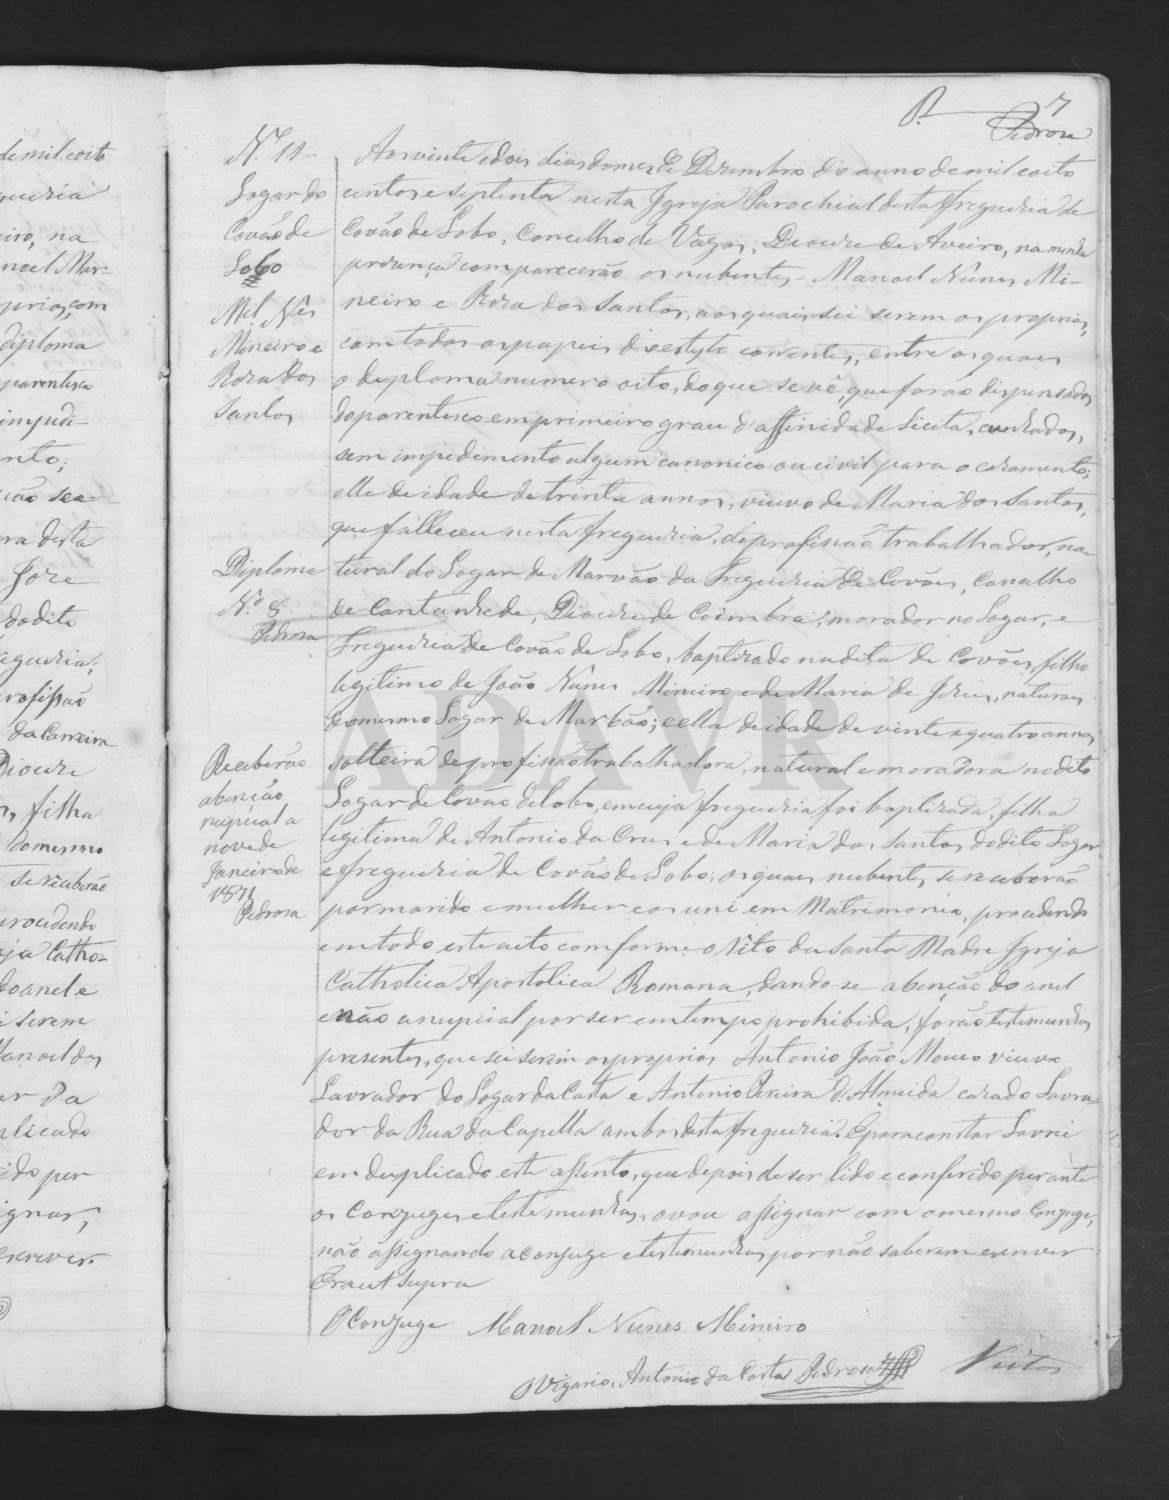 R. 7
Pedrosa
N.º 11
Logar do
Covão de
Lobo
Mel Nes
Mineiro e
Roza dos
Santos
Diploma
N.º 8
Pedrosa
Receberão
abenção
nupcial a
nove de
Janeiro de
1871
Pedrosa
Aos vinte e dois dias do mes de Dezembro do anno de mil e oito
centos e septenta nesta Igreja Parochial desta freguezia de
Covão de Lobo, Concelho de Vagos, Diocese de Aveiro, na minha
prezença comparecerão os nubentes Manoel Nunes Mi-
neiro e Roza dos Santos, aos quais sei serem os proprios,
com todos os papeis do estylo correntes, entre os quaes
o deploma numero oito, do que se vê, que forão dispensados
do parentesco em primeiro grau d'affinidade licita, cunhados,
sem impedimento algum canonico ou civil para o cazamento;
elle de idade de trinta annos, viuvo de Maria dos Santos,
que falleceu nesta freguezia, de profissão trabalhador, na-
tural do Logar de Marvão da Freguezia de Covões, Concelho
de Cantanhede, Diocese de Coimbra, morador no Logar, e
Freguezia de Covão de Lobo, baptizado na dita de Covões, filho
legitimo de João Nunes Mineiro e de Maria de Jesus, naturaes
do mesmo Logar de Marvão; e ella de idade de vinte e quatro annos
solteira de profissão trabalhadora, natural e moradora no dito
Logar de Covão de Lobo, em cuja freguezia foi baptizada, filha
legitima de Antonio da Cruz e de Maria dos Santos do dito Logar
e freguezia de Covão de Lobo; os quaes nubentes se receberão
por marido e mulher e os uni em Matrimonio, procedendo
em todo este acto comforme o Rito da Santa Madre Igreja
Catholica Apostolica Romana, dando-se abenção do anel
e não a nupcial por ser em tempo prohibido, forão testemunhas
presentes, que sei serem os proprios Antonio João Mouco viuvo
Lavrador do Logar da Costa e Antonio Pereira d'Almeida cazado Lavra-
dor da Rua da Capella ambos desta freguezia. E para constar Lavrei
em duplicado este assento, que depois de ser lido e conferido perante
os Conjuges e testemunhas, o vou assignar com o mesmo Conjuge,
não assignando a conjuge e testemunhas por não saberem escrever
Era ut supra
O Conjuge Manoel Nunes Mineiro
O Vigario, Antonio da Costa Pedrosa
ADAVR
de mil e oito
guezia
eiro, na
noel Mar-
prios, com
diploma
parentesco
impedi-
nto;
desta
Joze
do dito
eguezia;
rofissão
da Carreira
Diocese
filha
do mesmo
se receberão
rocedendo
Catho-
do anel e
serem
Manoel dos
da
plicado
ido per
ignar,
escrever.